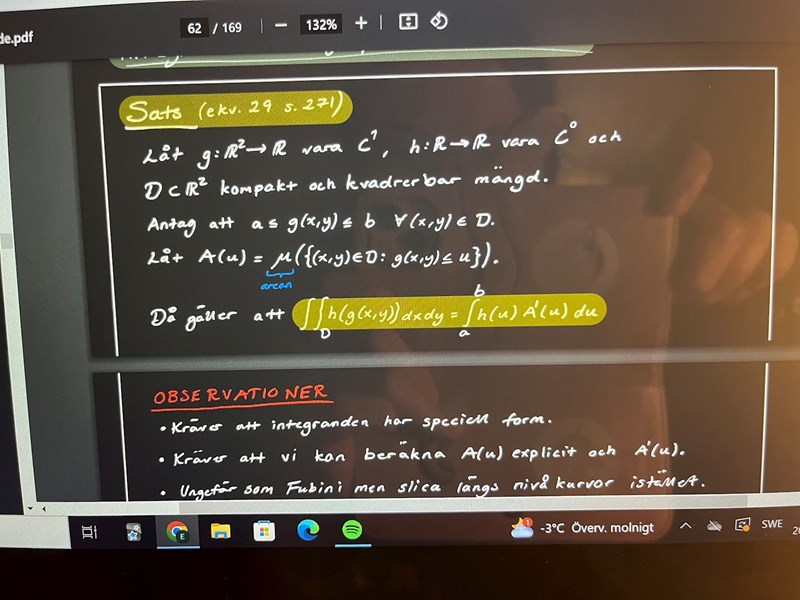 de.pdf
62 / 169 − 132% +
Sats (ekv. 29 s. 271)
Låt g: ℝ² → ℝ vara C¹, h: ℝ → ℝ vara C⁰ och
D ⊂ ℝ² kompakt och kvadrerbar mängd.
Antag att a ≤ g(x,y) ≤ b ∀(x,y) ∈ D.
Låt A(u) = μ({(x,y) ∈ D: g(x,y) ≤ u}).
arean
Då gäller att ∬_D h(g(x,y)) dxdy = ∫_a^b h(u) A'(u) du
OBSERVATIONER
• Kräver att integranden har speciell form.
• Kräver att vi kan beräkna A(u) explicit och A'(u).
• Ungefär som Fubini men slica längs nivåkurvor istället.
-3°C Överv. molnigt
SWE